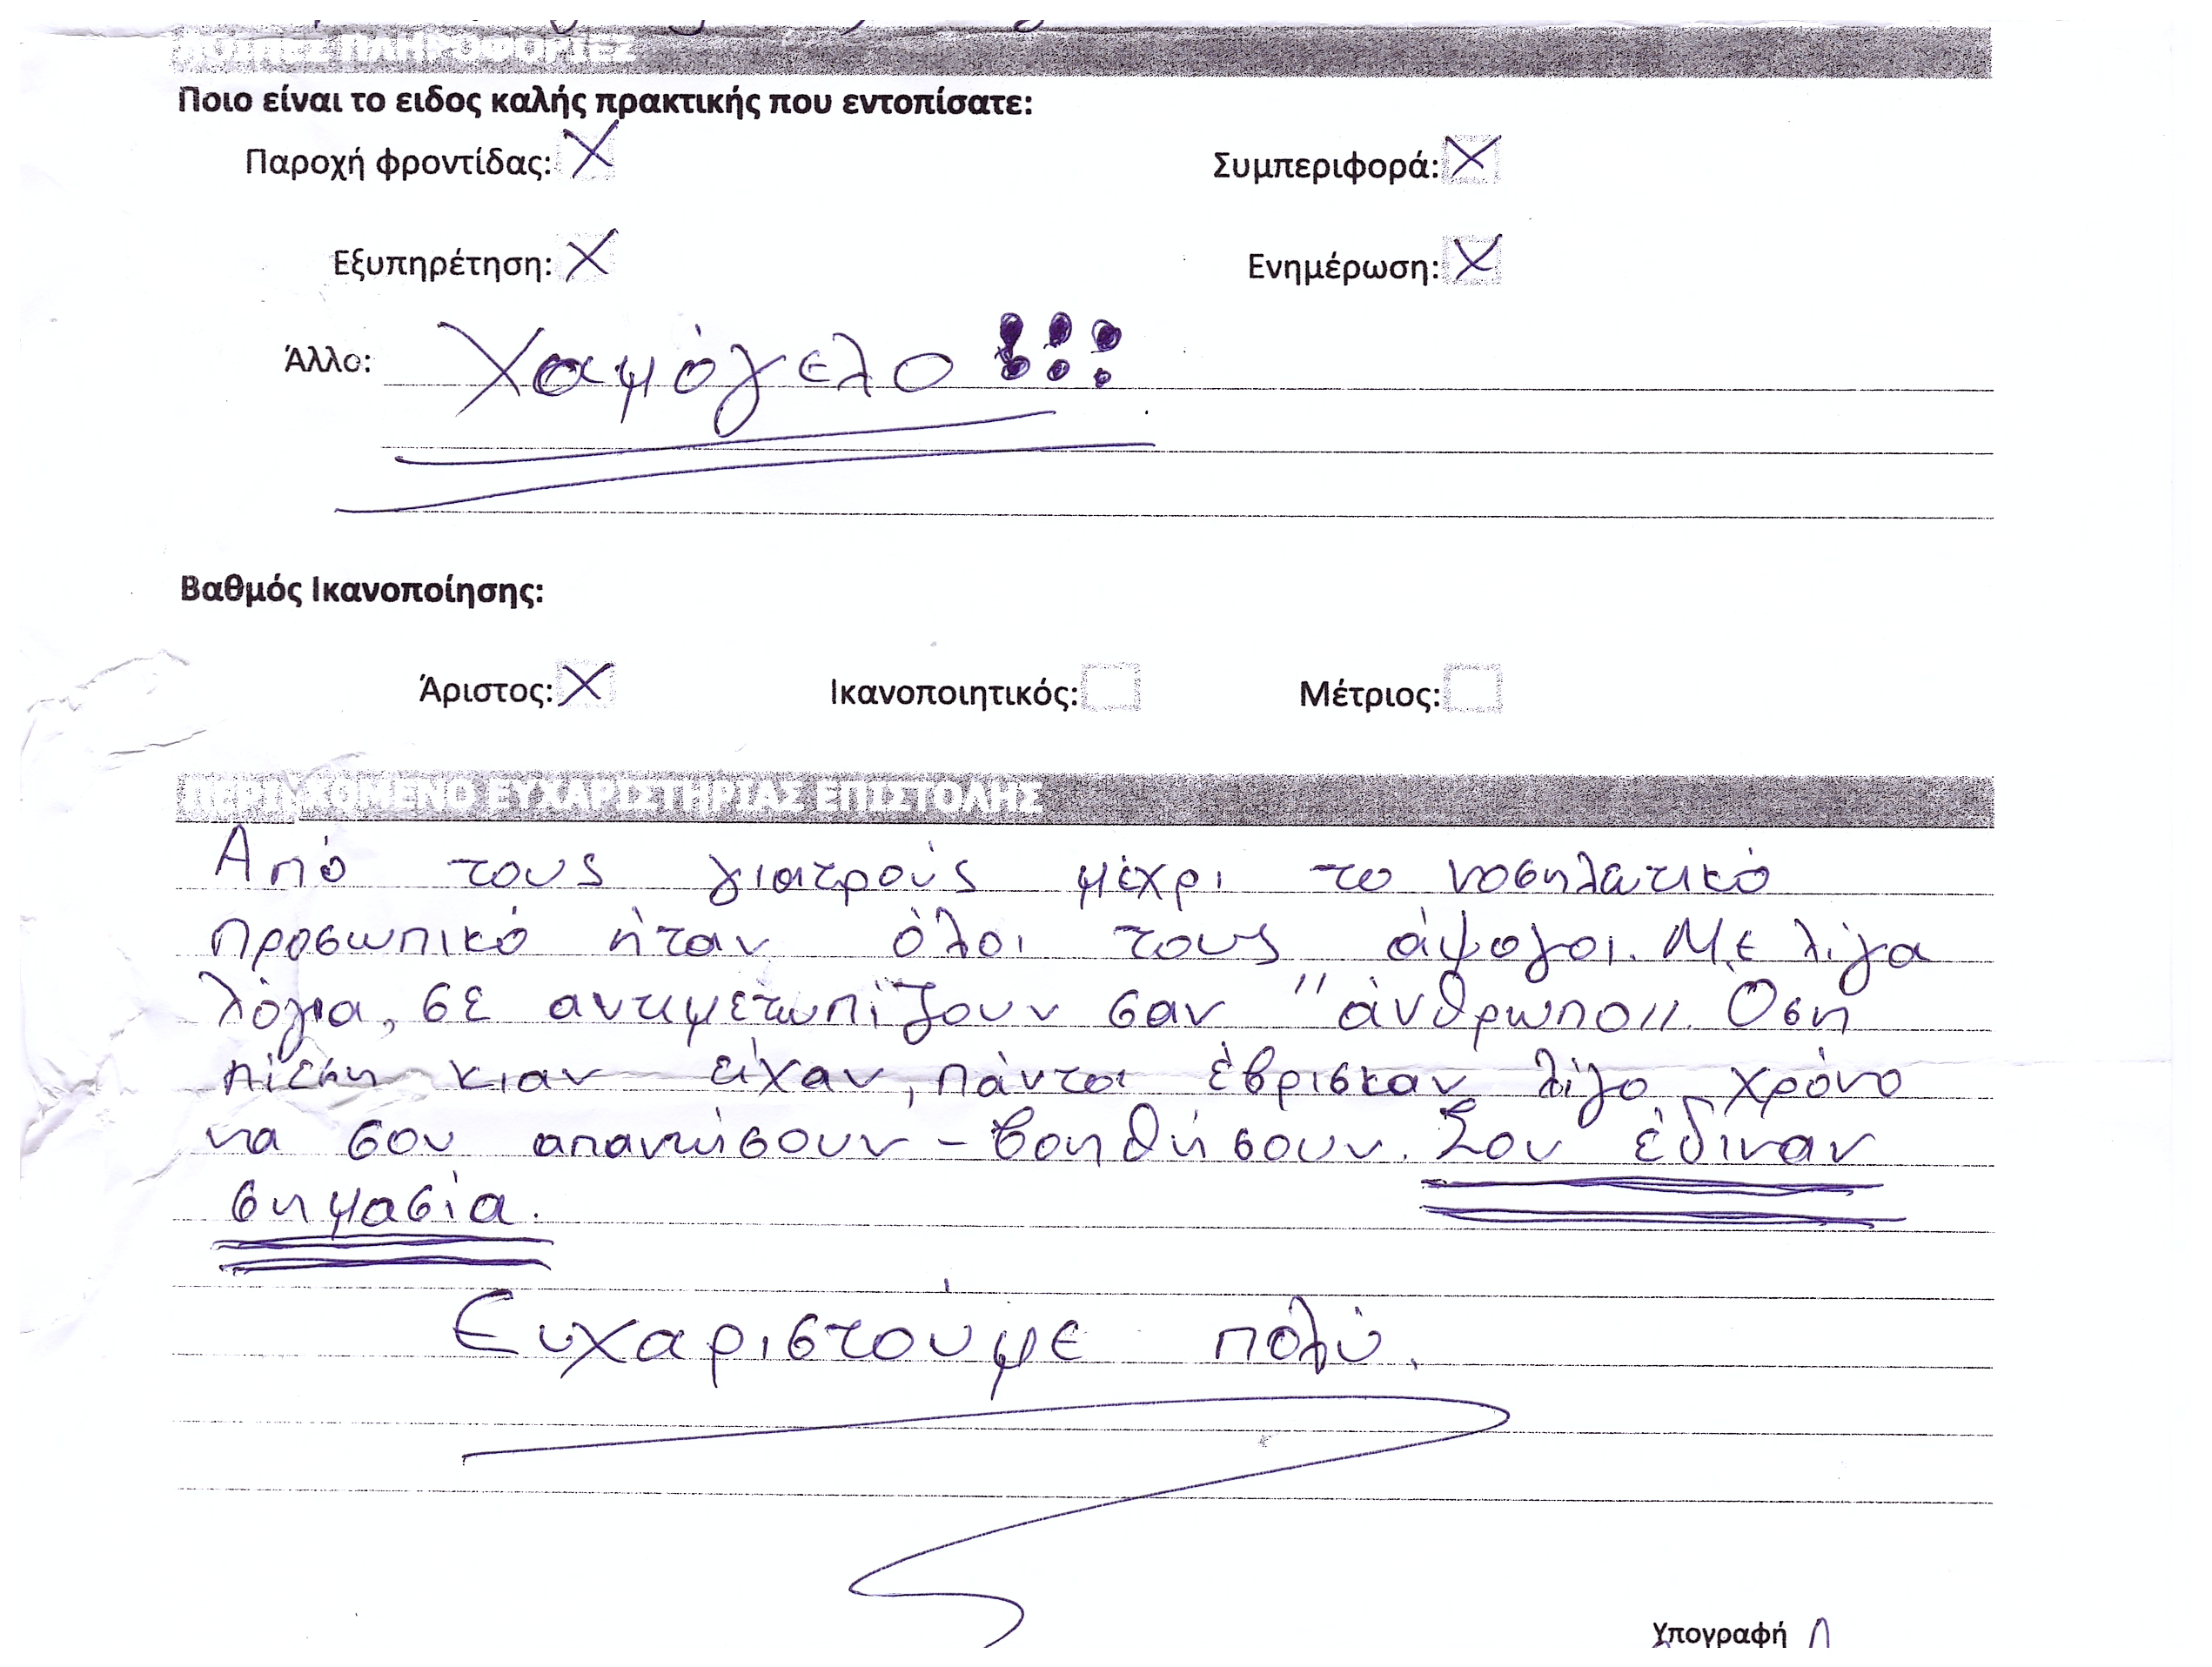 ΛΟΙΠΕΣ ΠΛΗΡΟΦΟΡΙΕΣ
Ποιο είναι το ειδος καλής πρακτικής που εντοπίσατε:
Παροχή φροντίδας: Συμπεριφορά:
Εξυπηρέτηση: Ενημέρωση:
Άλλο: Χαμόγελο !!!
Βαθμός Ικανοποίησης:
Άριστος: Ικανοποιητικός: Μέτριος:
ΠΕΡΙΕΧΟΜΕΝΟ ΕΥΧΑΡΙΣΤΗΡΙΑΣ ΕΠΙΣΤΟΛΗΣ
Από τους γιατρούς μέχρι το νοσηλατικό
προσωπικό ήταν όλοι τους άψογοι. Με λίγα
λόγια, σε αντιμετωπίζουν σαν "άνθρωπο". Όση
πίεση κιαν είχαν, πάντα έβρισκαν λίγο χρόνο
να σου απαντήσουν - βοηθήσουν. Σου έδιναν
σημασία.
Ευχαριστούμε πολύ.
Υπογραφή